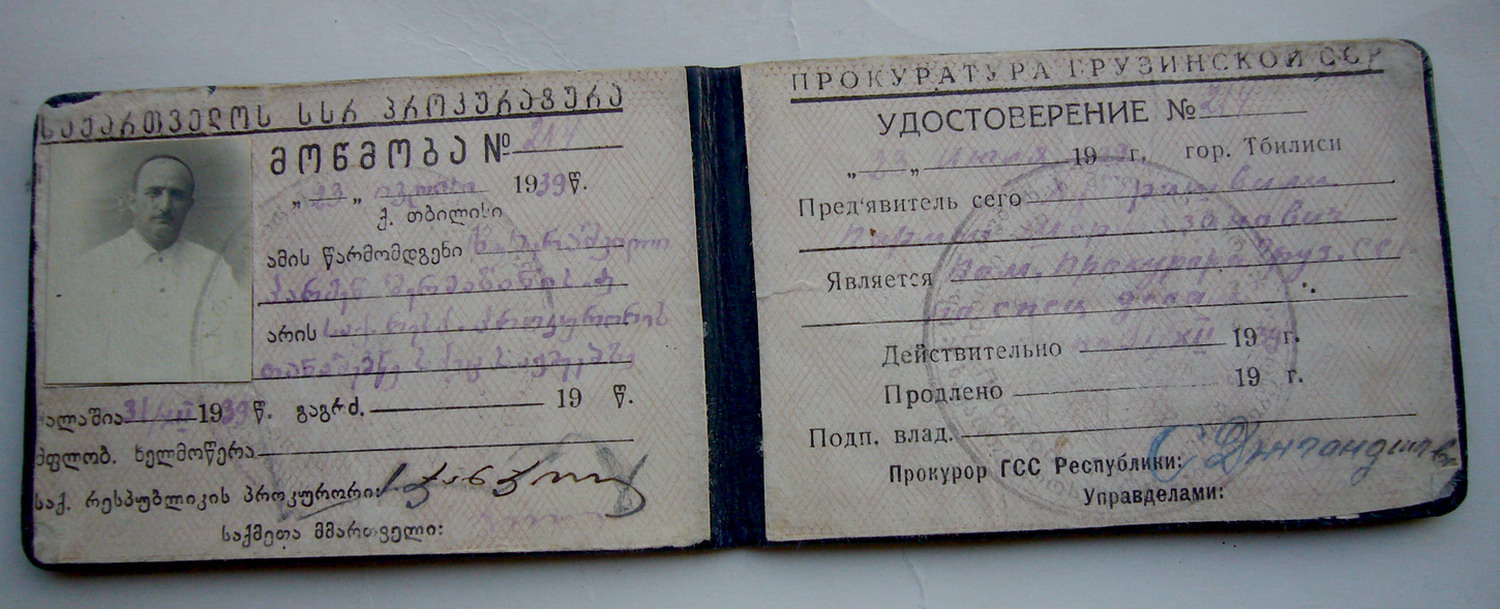 საქართველოს სსრ პროკურატურა
მოწმობა № 214
„23„ ივლისი 1939 წ.
ქ. თბილისი
ამის წარმომდგენი
პარმენ
არის
31/XII 1939 წ. გაგრძ. 19 წ.
მფლობ. ხელმოწერა
საქ. რესპუბლიკის პროკურორი:
საქმეთა მმართველი:
ПРОКУРАТУРА ГРУЗИНСКОЙ ССР
УДОСТОВЕРЕНИЕ № 214
„23„ Июля 1939 г. гор. Тбилиси
Пред'явитель сего
Является Зам. Прокурора Груз. ССР
по спец делам
Действительно по 31/XII 1939 г.
Продлено 19 г.
Подп. влад.
Прокурор ГСС Республики:
Управделами: